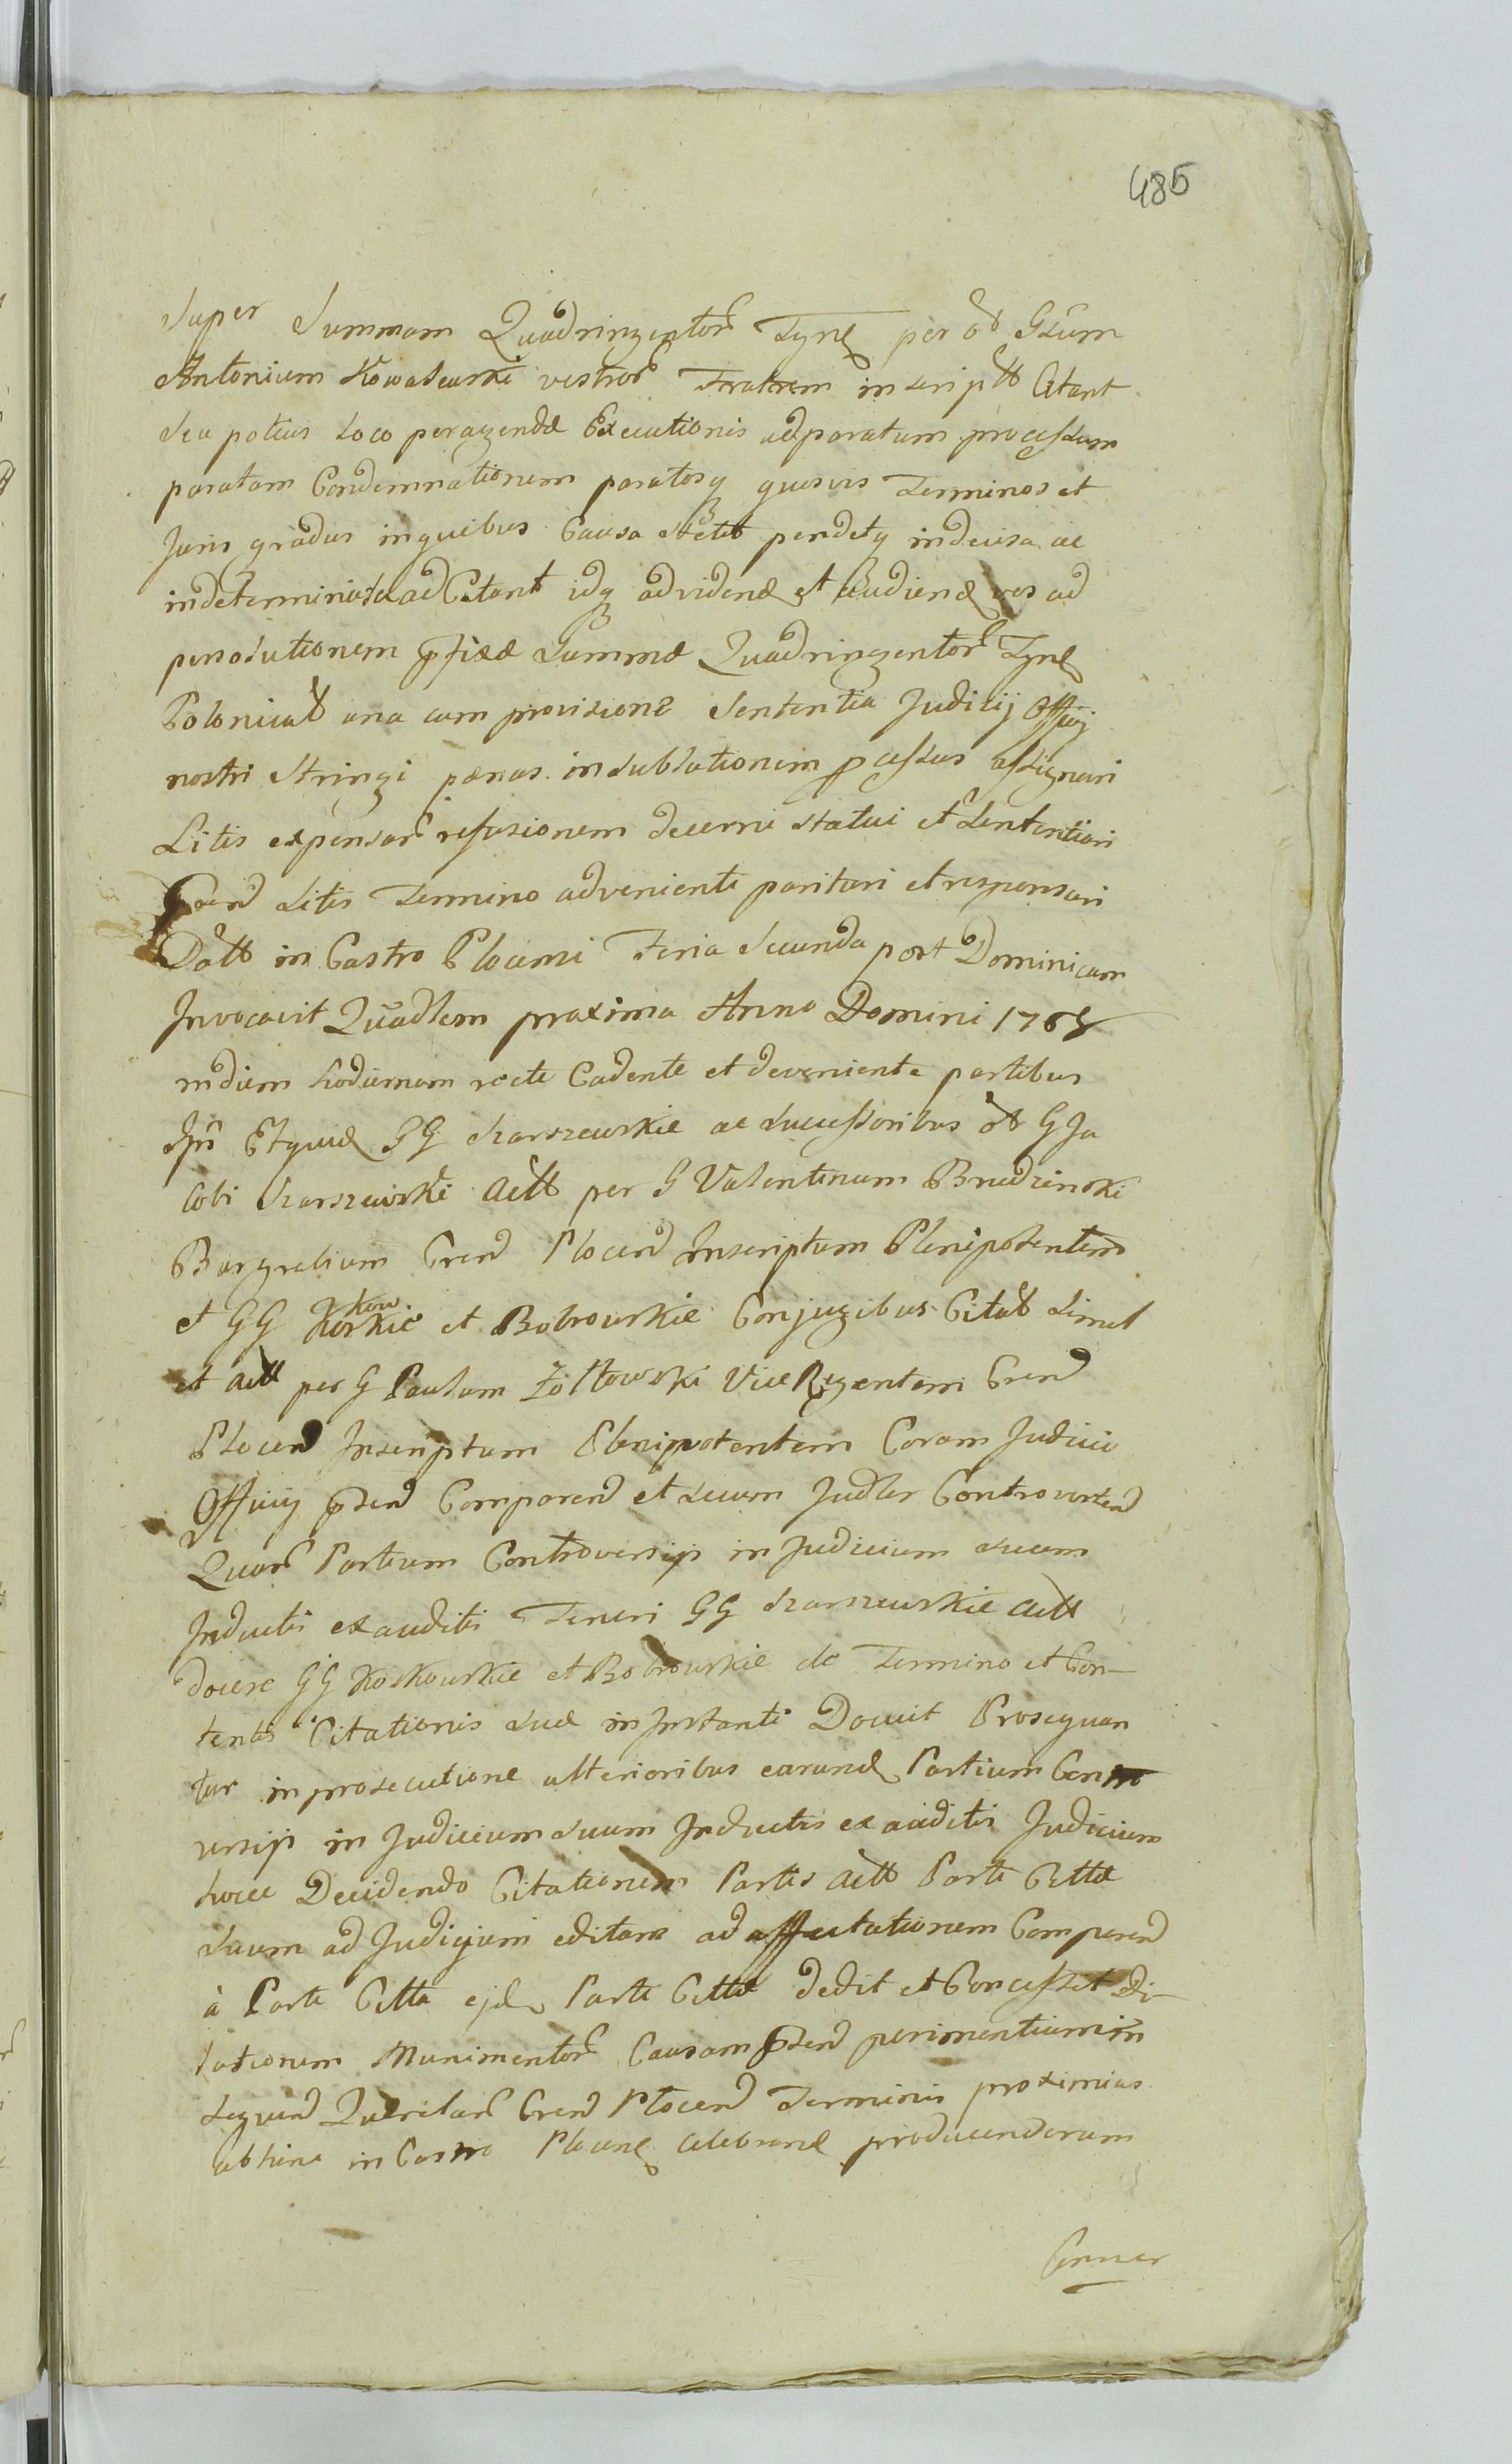 485
Super Summam Quadringentor Fynl per ol Gsum
Antonium Kowalewski vestror Fratrem inscriptt Citant
Seu potius Loco peragendæ Executionis ad paratum processum
paratam Condemnationem paratosq quosvis Terminos et
Juris gradus in quibus Causa stetit pendetq indecisa ac
indeterminata ad Citant idq ad vidend et audiend vos ad
persolutionem pfixæ Summæ Quadringentor Fynl
Polonical una cum provisione Sententia Judicij Officij
nostri Stringi pænas in sublationem pcessus assignari
Litis expensar refusionem decerni statui et Sententiari
Caend Litis Termino adveniente paritari et responsari
Datt in Castro Plocensi Feria Secunda post Dominicam
Invocavit Quadlem proxima Anno Domini 1768
in diem hodiernam recte Cadente et deveniente partibus
Ipsis Etquid GG Szarszewskie ac Successoribus ol G Ja
cobi Szarszewski Actt per G Valentinum Brudzinski
Burgrabium Crend Plocend Inscriptum Plenipotentem
et GG Koskow skie et Bobrowskie Conjugibus Citatt Simul
et Actt per G Paulum Żółtowski ViceRegentem Crend
Plocend Inscriptum Plenipotentem Coram Judicio
Officij psend Comparend et secum Judler Controvertend
Quar Partium Controversijs in Judicium suum
Inductis exauditis Teneri GG Szarszewskie Actt
docere GG Koskowskie et Bobrowskie de Termino et Con-
tentis Citationis suæ in Instanti Docuit Prosequan
tur in prosecutione ulterioribus earund Partium Contro
versijs in Judicium suum Inductis exauditis Judicium
hocce Decidendo Citationem Partis Actt Parti Cittæ
suum ad Judicium editam ad affectationem Comparend
à Parte Citta ejd Parti Cittæ dedit et Concessit Di-
lationem Munimentor Causam psend perimentium in
sequend Querelar Crend Plocend Terminis proximius
abhinc in Castro Plocend Celebrand producendorum
Conser